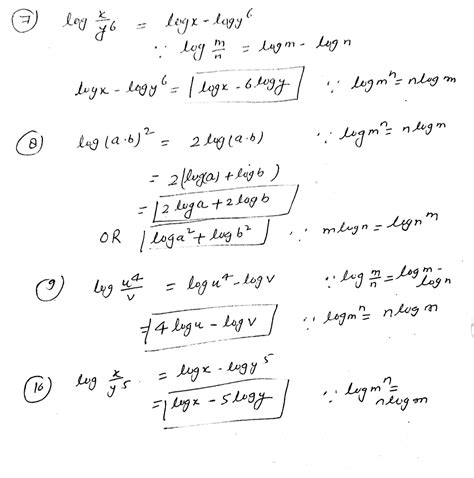 7) log x/y⁶ = log x - log y⁶
∵ log m/n = log m - log n
log x - log y⁶ = log x - 6 log y ∵ log mⁿ = n log m
8) log (a·b)² = 2 log (a·b) ∵ log mⁿ = n log m
= 2 (log(a) + log b)
= 2 log a + 2 log b
OR log a² + log b² ∵ m log n = log nᵐ
9) log u⁴/v = log u⁴ - log v ∵ log m/n = log m - log n
= 4 log u - log v ∵ log mⁿ = n log m
10) log x/y⁵ = log x - log y⁵
= log x - 5 log y ∵ log mⁿ = n log m